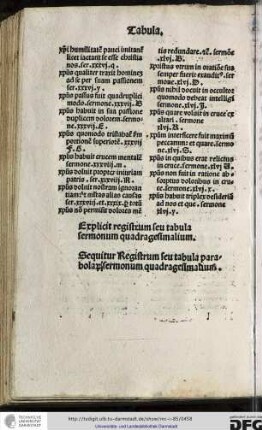 Tabula.
xp̄i humilitatē pauci imitant̄
licet iactant se esse christia
nos. ser. xxxvj. q.
xpūs qualiter traxit homines
ad se per suam passionem
ser. xxxv. y.
xpūs passus fuit quadruplici
modo. sermone. xxxvij. B
xpūs habuit in sua passione
duplicem dolorem. sermo-
ne. xxxvij. E.
xpūs quomodo
F. H.
xpūs habuit crucem mentalē
sermone. xxxviij. m.
xpūs voluit propter iniuriam
patris. ser. xxxviij. R.
xpūs voluit nostram ignoran
tiam
xpūs nō permisit dolores mē
tis redundare. ser. sermōe
xlvj. B.
xpistus verum in oratiōe sua
semper fuerit exauditꝰ. ser
mone. xlvj. D.
xpūs nihil docuit in occulto
quomodo debeat intelligi
sermone. xlvj. J.
xpūs quare voluit in cruce ex
altari. sermone
xlvj. R.
xpūm interficere fuit maximū
peccatum: et quare. sermo-
ne. xlvj. S.
xpūs in quibus erat relictus
in cruce. sermone. xlvj. U
xpūs non fuit in ratione ab
scoptus doloribus in cru-
ce. sermone. xlvj. x.
xpūs habuit triplex desideriū
ad nos et quę. sermone
xlvj. y.
Explicit registrum seu tabula
sermonum quadragesimalium.
Sequitur Registrum seu tabula para
bolaꝝ sermonum quadragesimalium.
http://tudigit.ulb.tu-darmstadt.de/show/inc-i-85/0458
Universitäts- und Landesbibliothek Darmstadt
DFG